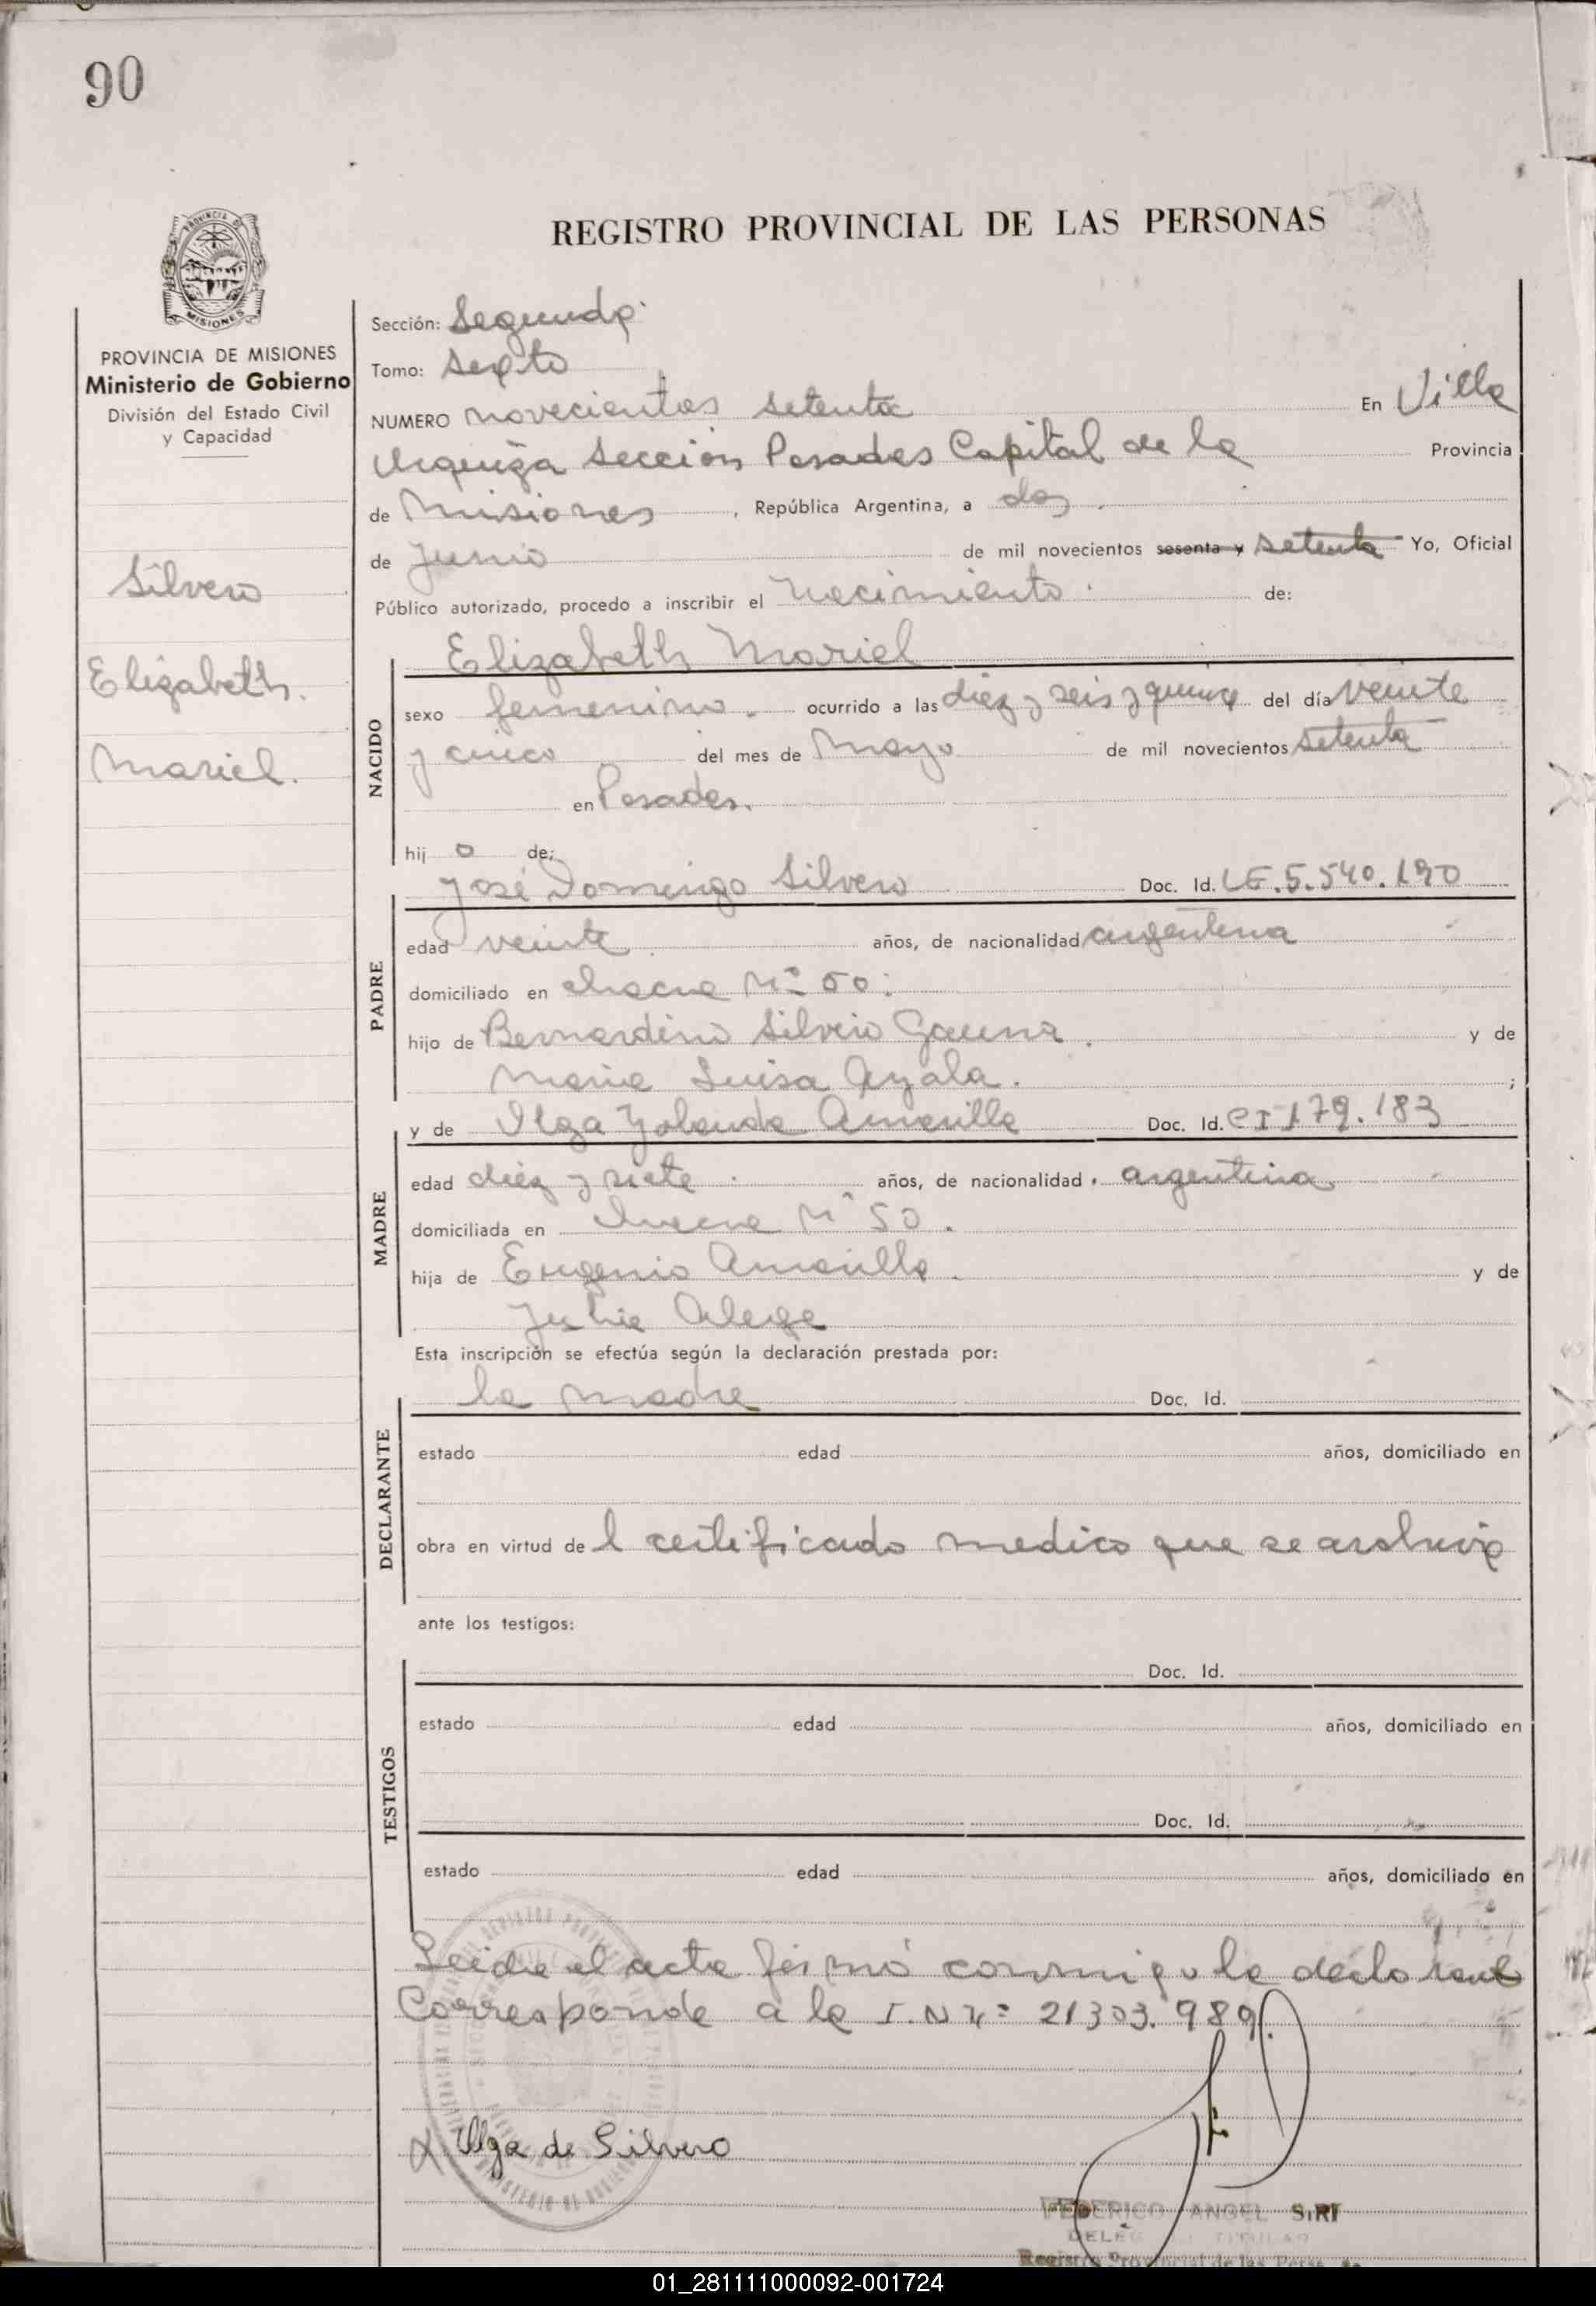 90
REGISTRO PROVINCIAL DE LAS PERSONAS
PROVINCIA DE MISIONES
Ministerio de Gobierno
División del Estado Civil
y Capacidad
Silvero
Elizabeth.
Mariel.
Sección: Segunda
Tomo: Sexto
NUMERO novecientos setenta En Villa
Urquiza Sección Posadas Capital de la Provincia
de Misiones, República Argentina, a dos
de Junio de mil novecientos sesenta y setenta Yo, Oficial
Público autorizado, procedo a inscribir el nacimiento de:
Elizabeth Mariel
NACIDO
sexo femenino. ocurrido a las diez y seis y quince del día veinte
y cinco del mes de Mayo de mil novecientos setenta
en Posadas.
hij a de:
José Domingo Silvero Doc. Id. LE.5.540.190
PADRE
edad veinte años, de nacionalidad argentina
domiciliado en chacra Nº 50.
hijo de Bernardino Silvero Gauna. y de
Maria Luisa Ayala. ;
y de Olga Yolanda Amarilla Doc. Id. CI 179.183
MADRE
edad diez y siete años, de nacionalidad argentina
domiciliada en chacra Nº 50.
hija de Eugenio Amarilla. y de
Julia
Esta inscripción se efectúa según la declaración prestada por:
la madre Doc. Id.
DECLARANTE
estado edad años, domiciliado en
obra en virtud de l certificado medico que se archiva
ante los testigos:
Doc. Id.
TESTIGOS
estado edad años, domiciliado en
Doc. Id.
estado edad años, domiciliado en
Leida el acta firmó conmigo la declarante
Corresponde a la I.N Nº 21303.989.
Olga de Silvero
FEDERICO ANGEL SIRI
TITULAR
Registro Provincial de las
01_281111000092-001724